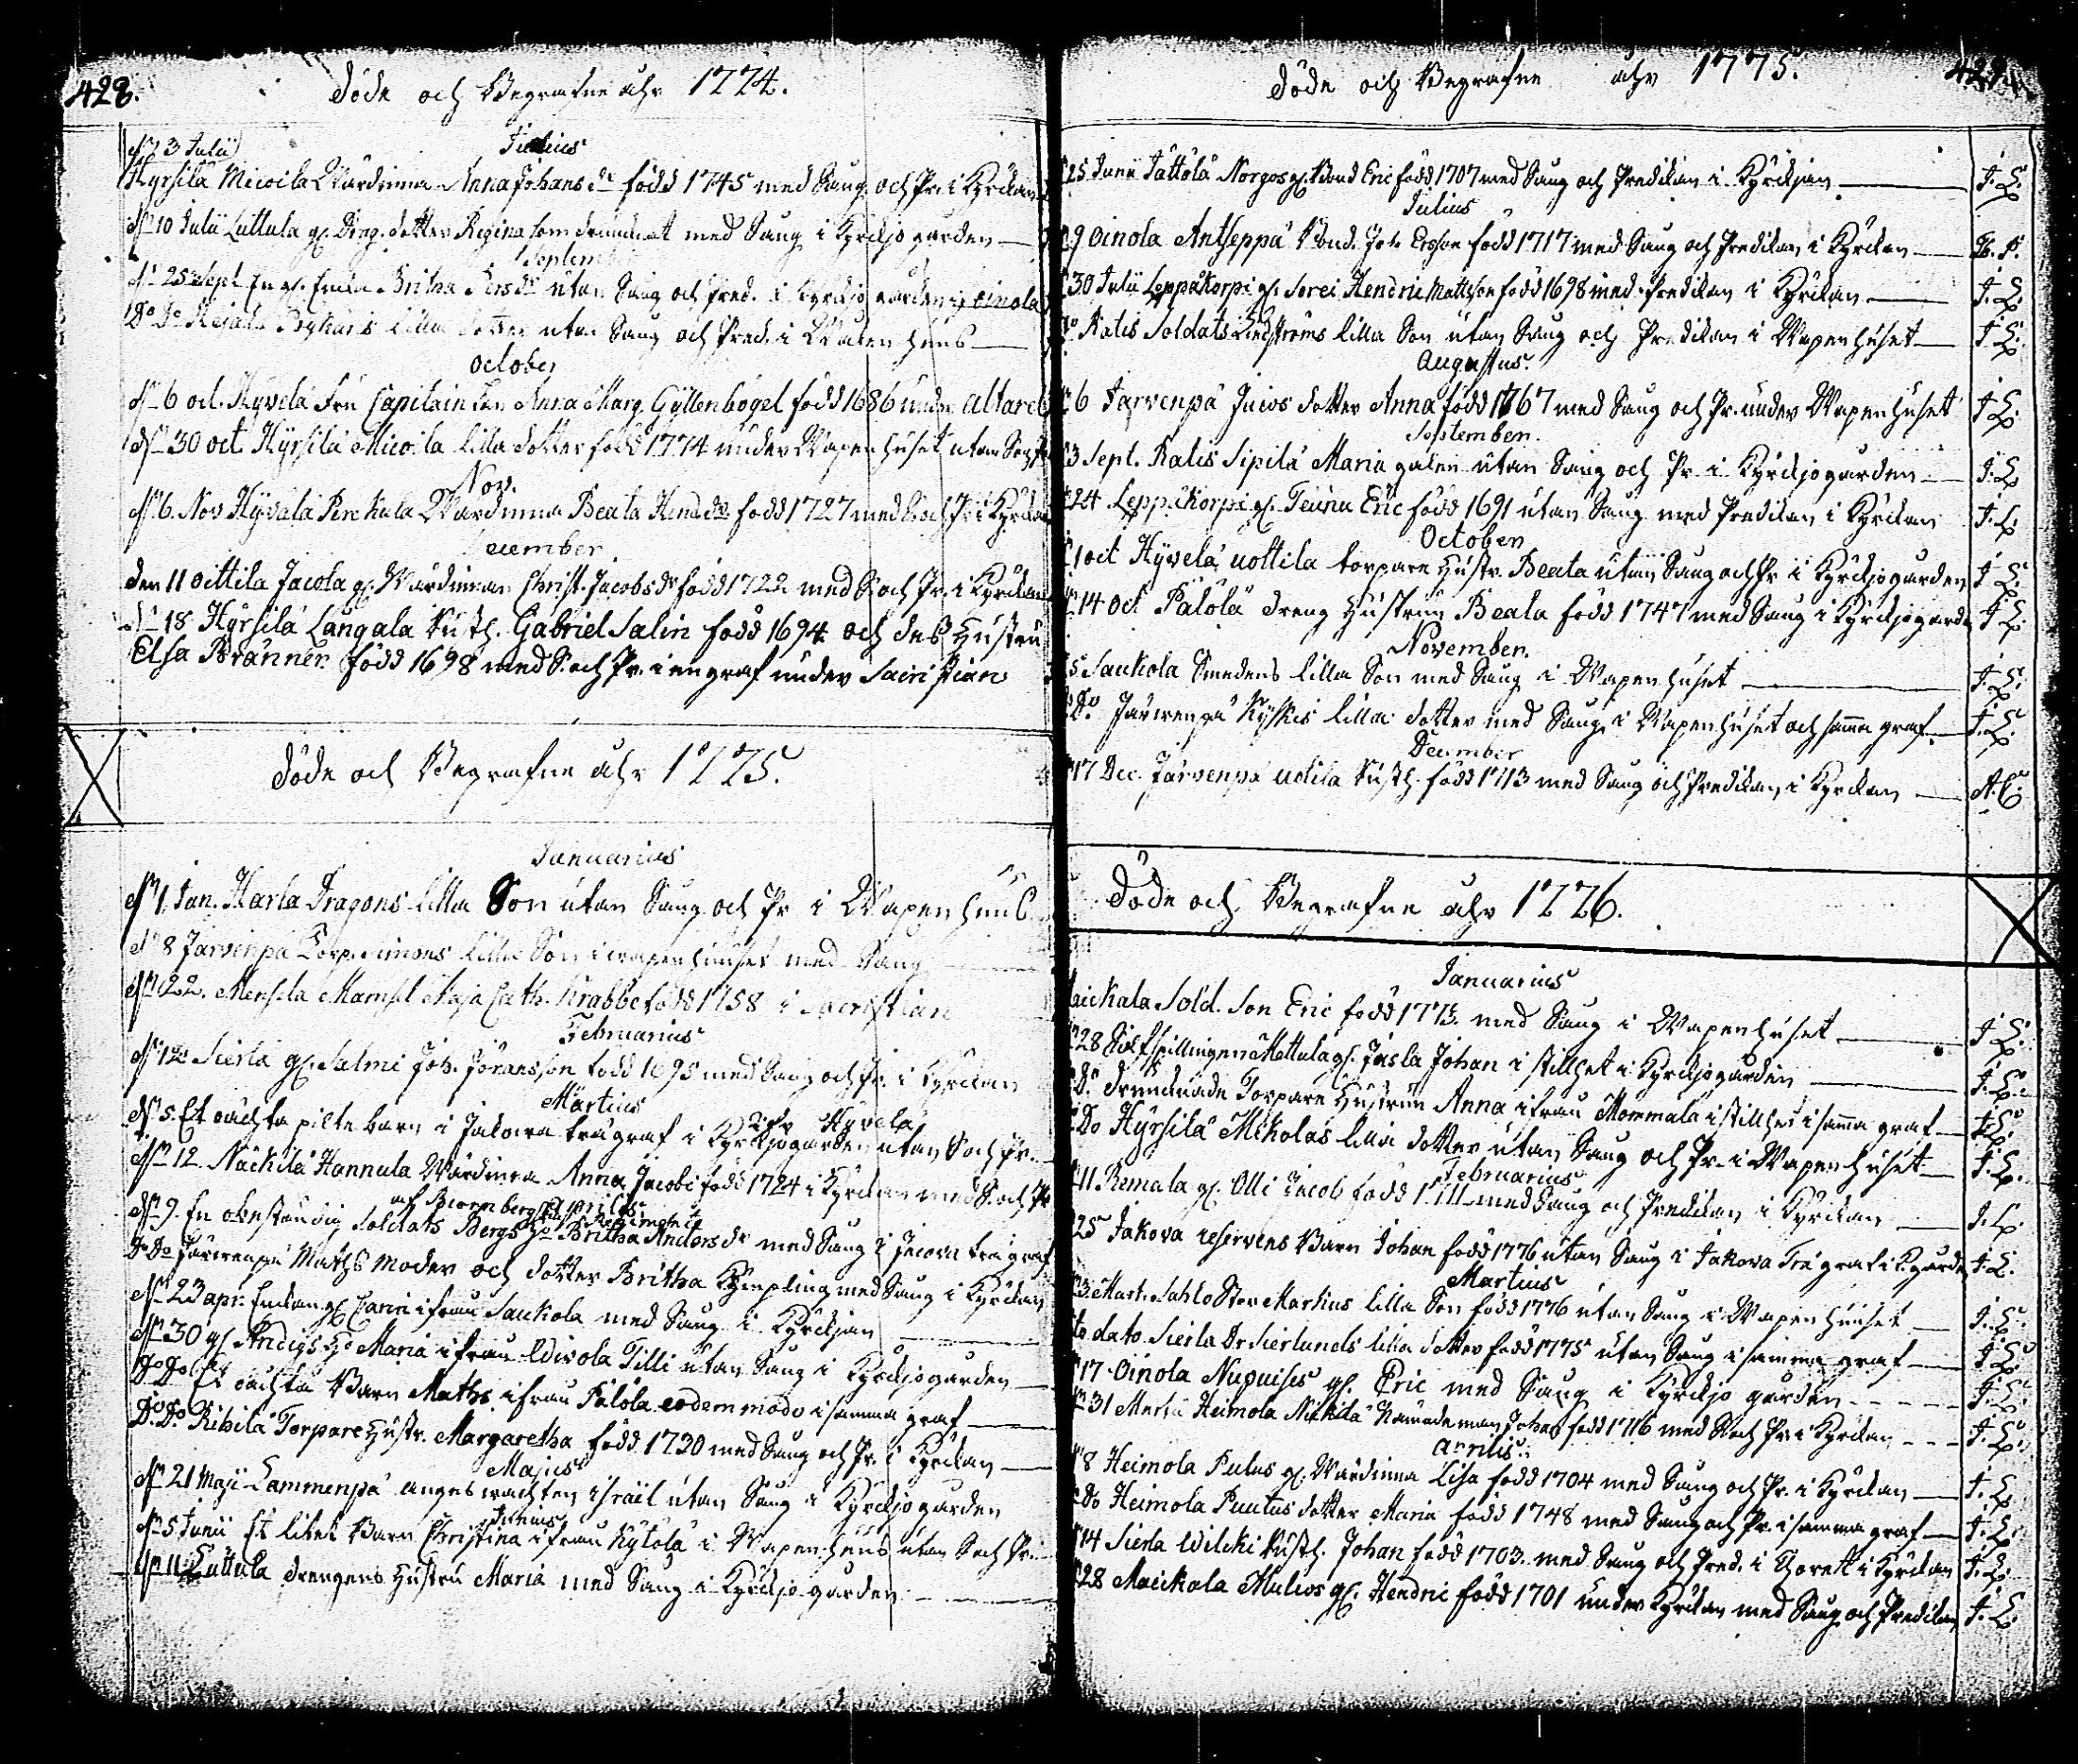 428.
Döde och Begrafne åhr 1774.
Julius
dn 3 Julii
Hyrsilä Micoila Wärdinna Anna Johans dr född 1745 med Sång och Pr. i Kyrckan
dn 10 Julii Luttula gl. Dräg. dotter Regina som drunknat med Sång i Kyrckjogården
September
dn 25 Sept. En gl. Enka Britha Persdr utan Sång och Pred. i Kyrckjogården ifr. Oinola
Do Do lilla dotter utan Sång och Pred. i Wapenhuus
October
dn 6 oct. Hyvelä Fru Capitain Anna Marg. Gyllenbögel född 1686 under altaret
dn 30 oct. Hyrsilä Micoila lilla dotter född 1774 under Wapenhuset utan Sång
Nov.
dn 6. Nov Hyvälä Perckula Wärdinna Beata Hend. dr född 1727 med S. och Pr. i Kyrckan
December
den 11 Oittila Jacola gl. Wärdinnan Christ. Jacobs dr född 1722 med S. och Pr. i Kyrckan
dn 18 Hyrsilä Längälä Rusth. Gabriel Salin född 1694 och dess Hustru
Elsa Brånner född 1698 med S. och Pr. i en graf under Sacristian
Döde och Begrafne åhr 1775.
Januarius
dn 1 Jan. Harla Dragons lilla Son utan Sång och Pr i Wapenhuus
dn 8 Järvenpä Torp. Simons lilla Son i wapenhuuset med Sång
dn 22. Mensela Mamsel Maja Cath. Krabbe född 1758 i Sacristian
Februarius
dn 12 Sierla gl. Salmi Joh. Jöransson född 1695 med Sång och Pr. i Kyrckan
Martius
ifr Hyvelä
dn 5. Et oächta pilte barn i Jakova trägraf i Kyrckjogården utan S och Pr.
dn 12. Näckilä Hannula Wärdinna Anna Jacobi född 1724 i Kyrckan med S. och Pr
Aprilis
af Biörneborgs Regimente
dn 9. En obeständig Soldats Bergs Ho Britha Anders dr med Sång i Jacova trägraf
Do Do Järwenpä Maths moder och dotter Britha Kympling med Sång i Kyrckan
dn 23 apr. Enkan gl. Carin ifrån Saukola med Sång i Kyrckjan
dn 30 gl. Anders Ho Maria ifrån Wivola Tilli utan Sång i Kyrckjogården
Do Do Et oächta Barn Maths ifrån Pälölä eodem modo i samma graf
Do Do Rihilä Torpare Hustr. Margaretha född 1730 med Sång och Pr. i Kyrckan
Majus
dn 21 Maji Lammenpä ängswachten Israël utan Sång i Kyrckjogården
Junius
dn 5 Junii Et litet Barn Christina ifrån Kytölä i Wapenhuus utan S och Pr.
dn 11 Luttula drengens Hustru Maria med Sång i Kyrckjogården
Döde och Begrafne åhr 1775.
429.
25 Junii Tattola Norgos gl. Bond Eric född 1707 med Sång och Predikan i Kyrckjan J. L.
Julius
9 Oinola Antseppä Bond. Joh. Ersson född 1717 med Sång och Predikan i Kyrckan
30 Julii Leppäkorpi gl. Sorri Hendric Mattsson född 1698 med Predikan i Kyrckan J. L.
Do Ratis Soldats Lindströms lilla Son utan Sång och Predikan i Wapenhuset J. L.
Augustus.
6 Jarvenpä Juios dotter Anna född 1767 med Sång och Pr. under Wapenhuset J. L.
September.
3 Sept. Ratis Sipilä Maria galen utan Sång och Pr. i Kyrckjogården J. L.
24 Leppäkorpi gl. Teünu Eric född 1691 utan Sång med Predikan i Kyrckan J. L.
October
1 oct Hyvelä Uottila torpare Hustr. Beata utan Sång och Pr i Kyrckjogården J. L.
14 Oct Pälölä dreng Hustrun Beata född 1747 med Sång i Kyrckjogården J. L.
November.
5 Saukola Smedens lilla Son med Sång i Wapenhuset J. L.
Do Järvenpä Kyskis lilla dotter med Sång i Wapenhuset och samma graf J. L.
December
17 Dec. Järvenpä Uotila Rusth. född 1713 med Sång och Predikan i Kyrckan A. C.
Döde och Begrafne åhr 1776.
Januarius
aickala Sold. Son Eric född 1775 med Sång i Wapenhuset J. L.
28 Siälfspillingen Mettula gl. Jusla Johan i stillhet i Kyrckjogården J. L.
Do drunknade Torpare Hustrun Anna ifrån Mommala i stillhet i samma graf J. L.
Do Hyrsilä Mikolas lilla dotter utan Sång och Pr. i Wapenhuset J. L.
Februarius
11 Remala gl. Olli Jacob född med Sång och Predikan i Kyrckan J. L.
25 Jakova reservens Barn Johan född 1776 utan Sång i Jakova Trägraf i K. gården J. L.
Martius
3 Mart. Sahlo Stor Markus lilla Son född 1776 utan Sång i Wapenhuuset J. L.
to dato. Sierla Dr Sierlunds lilla dotter född 1775 utan Sång i samma graf J. L.
17 Oinola Nupuises gl. Eric med Sång i Kyrckjo gården J. L.
31 Martii Heimola Nickilä Nämndeman Johan född 1716 med S och Pr i Kyrckan J. L.
Aprilis
8 Heimola Putus gl. Wärdinna Lisa född 1704 med Sång och Pr. i Kyrckan J. L.
Do Heimola Puutus dotter Maria född 1748 med Sång och Pr. i samma graf J. L.
14 Sierla Wilcki Rusth. Johan född 1703 med Sång och Pred. i Choret i Kyrckan J. L.
28 Maickala Mulios gl. Hendric född 1701 under Kyrckan med Sång och Predikan J. L.